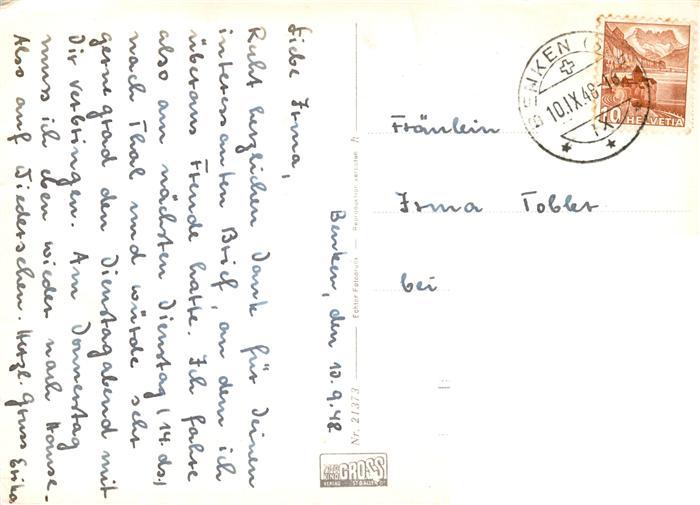 Benken, den 10.9.48
Liebe Irma,
Recht herzlichen Dank für Deinen
interessanten Brief, an dem ich
überaus Freude hatte. Ich fahre
also am nächsten Dienstag (14. ds.)
nach Thal und würde sehr
gerne grad den Dienstagabend mit
Dir verbringen. Am Donnerstag
muss ich eben wieder nach Hause.
Also auf Wiedersehen. Herzl. Gruss Erika
Nr. 21373 — Echter Fotogruss — Reproduktion verboten
GROSS
VERLAG ST. GALLEN
BENKEN
10.IX.48-16
10 HELVETIA
Fräulein
Irma Tobler
bei